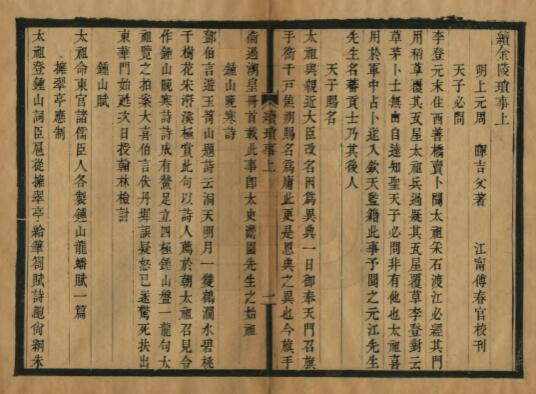 續金陵瑣事上
明上元周　暉吉父著　江甯傅春官校刊
天子必問
李登元末住西善橋賣卜聞太祖采石渡江必經其門
用稻草覆其五星太祖兵過疑其五星覆草李登對云
草茅卜士無由自達知聖天子必問非有他也太祖喜
用於軍中占卜遂入欽天監籍此事予聞之元江先生
先生名蕃貢士乃其後人
天子賜名
太祖與親近大臣改名因爲異典一日御奉天門召旗
手衛千戶焦朔賜名爲庸此更是恩典之異也今旗手
衛過湖皇冊首載此事卽太史澹園先生之始祖
鍾山晚寒詩
鄧伯言遊玉笥山題詩云洞天明月一雙鶴澗水碧桃
千樹花宋濳溪極賞此句以詩人薦於朝太祖召見令
作鍾山晚寒詩詩成有鰲足立四極鍾山盤一龍句太
祖覽之拍案大喜伯言伏丹墀誤疑怒已遂驚死扶出
東華門始甦次日授翰林檢討
鍾山賦
太祖命東宮諸儒臣人各製鍾山龍蟠賦一篇
擁翠亭應制
太祖登鍾山詞臣扈從擁翠亭給筆劄賦詩鮑尙絅朱
瑣事上
一